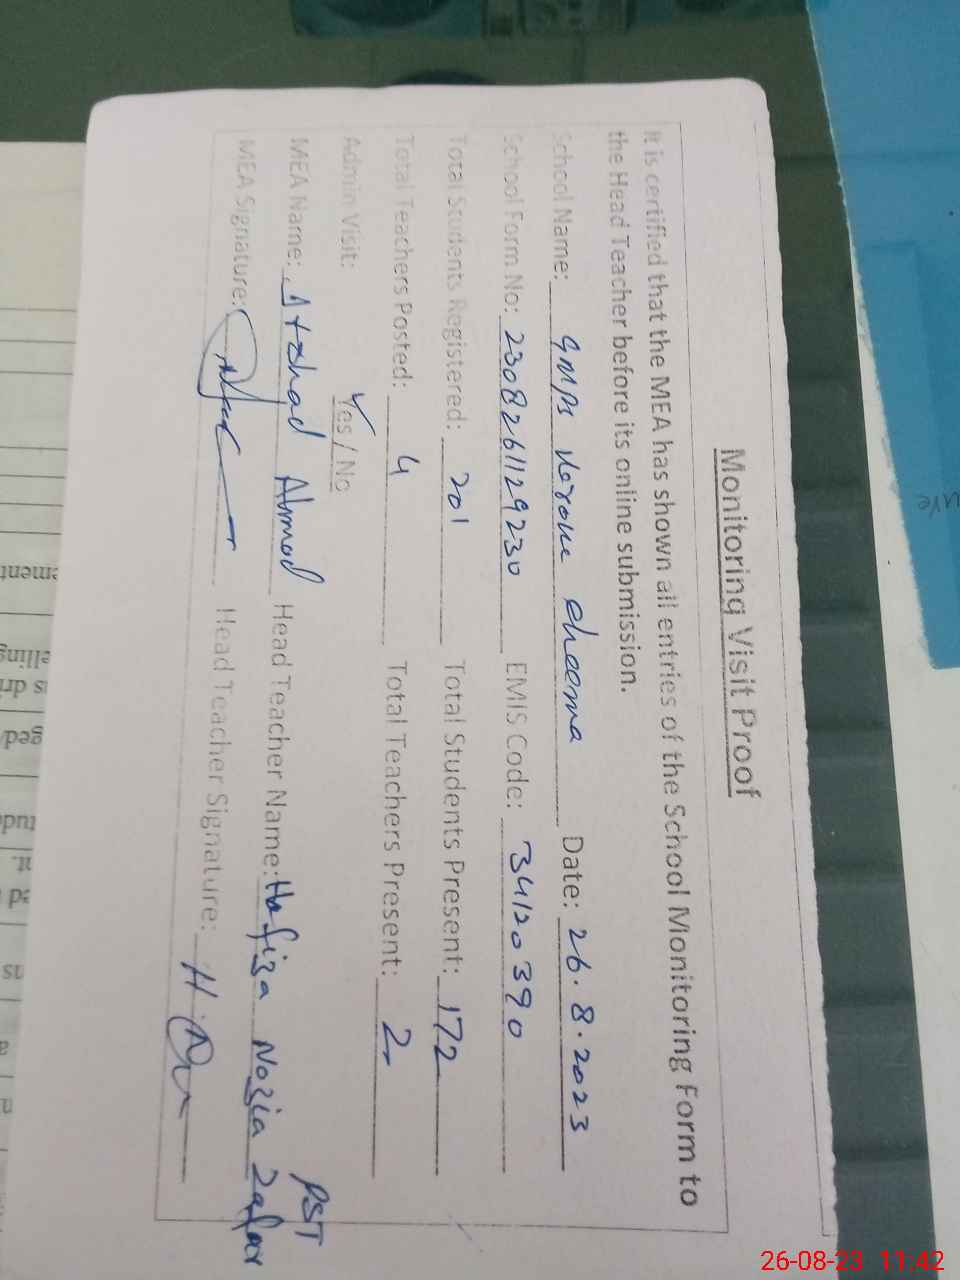 Monitoring Visit Proof
It is certified that the MEA has shown all entries of the School Monitoring Form to
the Head Teacher before its online submission.
School Name: GMPS Verowe cheema Date: 26.8.2023
School Form No: 2308261129230 EMIS Code: 34120390
Total Students Registered: 201 Total Students Present: 172
Total Teachers Posted: 4 Total Teachers Present: 2
Admin Visit: Yes / No
MEA Name: Ahmad Head Teacher Name: Hafiza Nazia Zafar PST
MEA Signature: Head Teacher Signature:
26-08-23 11:42